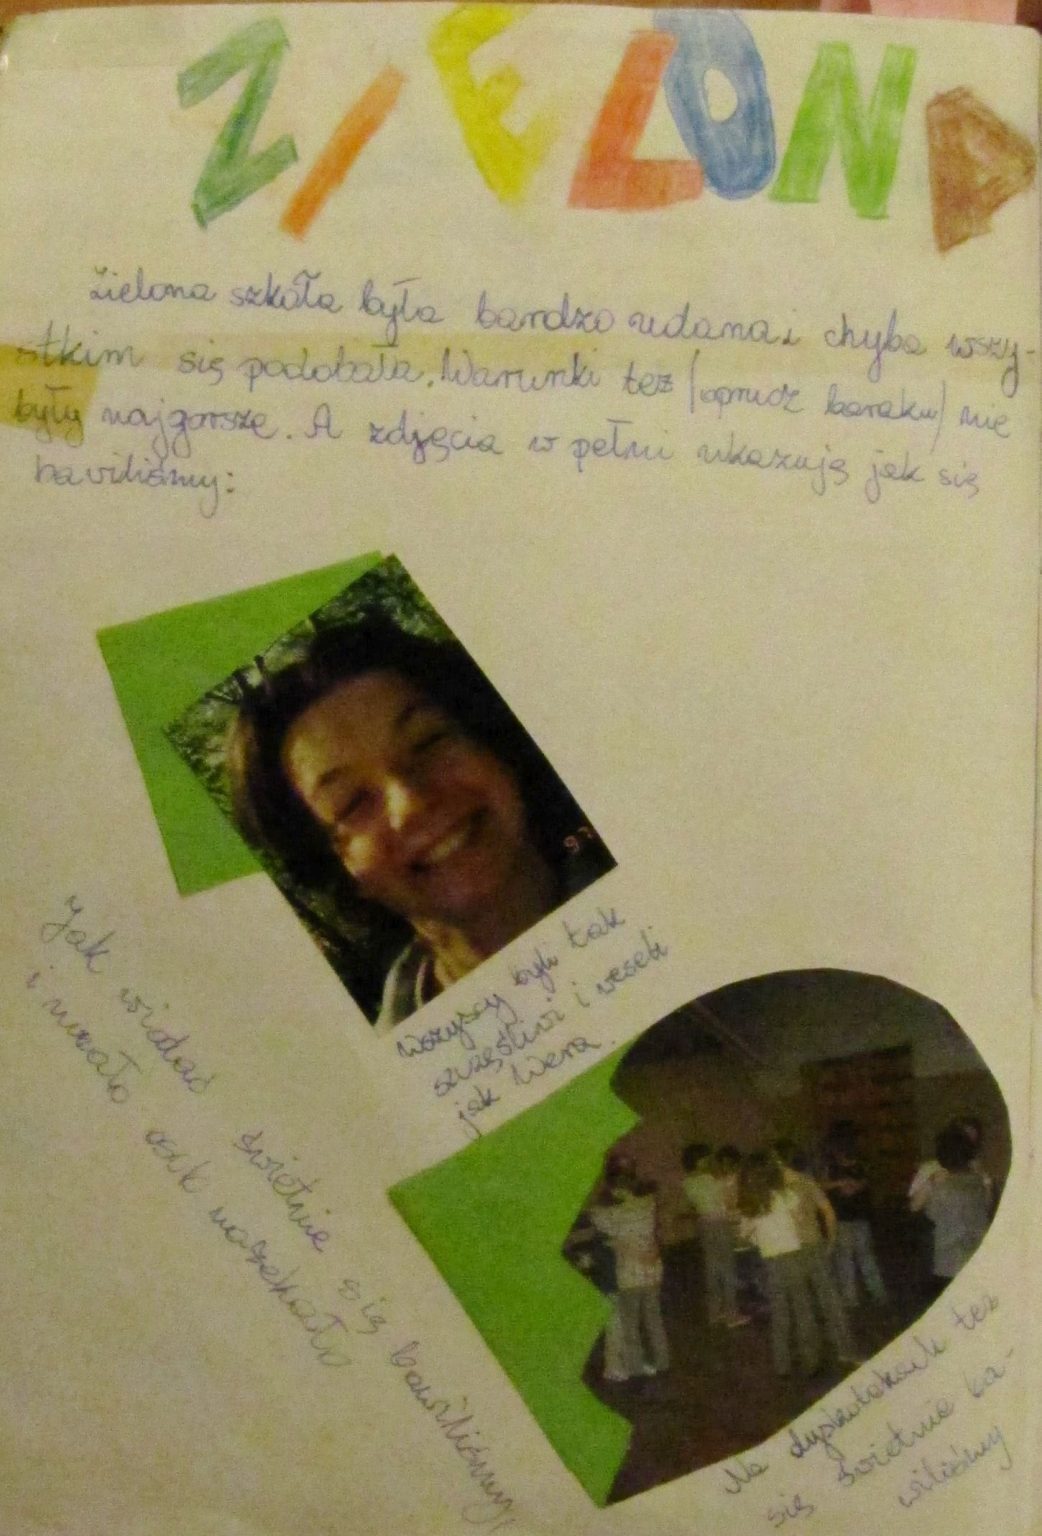 ZIELONA
Zielona szkoła była bardzo udana i chyba wszy-
stkim się podobała. Warunki też (oprucz baraku) nie
były najgorsze. A zdjęcia w pełni ukazują jak się
bawiliśmy:
97
Wszyscy byli tak
szczęśliwi i weseli
jak Wera.
Jak widać świetnie się bawiliśmy
i mało osób
Na dyskotekach też
się świetnie ba-
wiliśmy